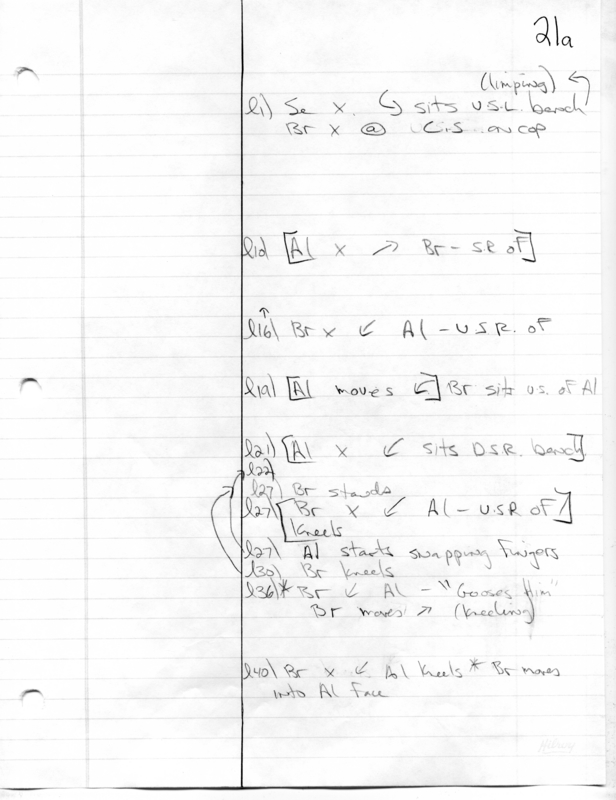 21a
(limping)
l1) Se x. ⤷ sits U.S.L. bench
Br x @ C.S. on cop
l12) [Al x ↗ Br - SR of]
↑
l16) Br x ↙ Al - U.S.R. of
l19) [Al moves ↙] Br sits us. of Al
l21) [Al x ↙ sits D.S.R. bench]
l22)
l27) Br stands
l27) [Br x ↙ Al - U.S.R of]
Kneels
l27) Al starts snapping fingers
l30) Br kneels
l36) * Br ↙ Al - "Gooses Him"
Br moves ↗ (kneeling)
l40) Br x ↙ Al kneels * Br moves
into Al Face